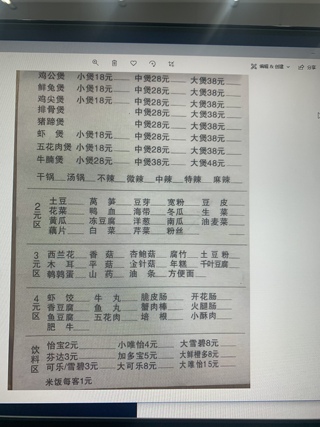 鸡公煲 小煲18元 中煲28元 大煲38元
鲜兔煲 小煲18元 中煲28元 大煲38元
鸡尖煲 小煲18元 中煲28元 大煲38元
排骨煲 中煲28元 大煲38元
猪蹄煲 中煲28元 大煲38元
虾 煲 小煲18元 中煲28元 大煲38元
五花肉煲 小煲18元 中煲28元 大煲38元
牛腩煲 小煲28元 中煲38元 大煲48元
干锅 汤锅 不辣 微辣 中辣 特辣 麻辣
2元区
土豆 莴笋 豆芽 宽粉 豆皮
花菜 鸭血 海带 冬瓜 生菜
黄瓜 冻豆腐 洋葱 南瓜 油麦菜
藕片 白菜 芹菜 粉丝
3元区
西兰花 香菇 杏鲍菇 腐竹 土豆粉
木耳 平菇 金针菇 年糕 千叶豆腐
鹌鹑蛋 山药 油条 方便面
4元区
虾饺 牛丸 脆皮肠 开花肠
香豆腐 鱼丸 蟹肉棒 火腿肠
鱼豆腐 五花肉 培根 小酥肉
肥牛
饮料区
怡宝2元 小唯怡4元 大雪碧8元
芬达3元 加多宝5元 大鲜橙多8元
可乐/雪碧3元 大可乐8元 大唯怡15元
米饭每客1元